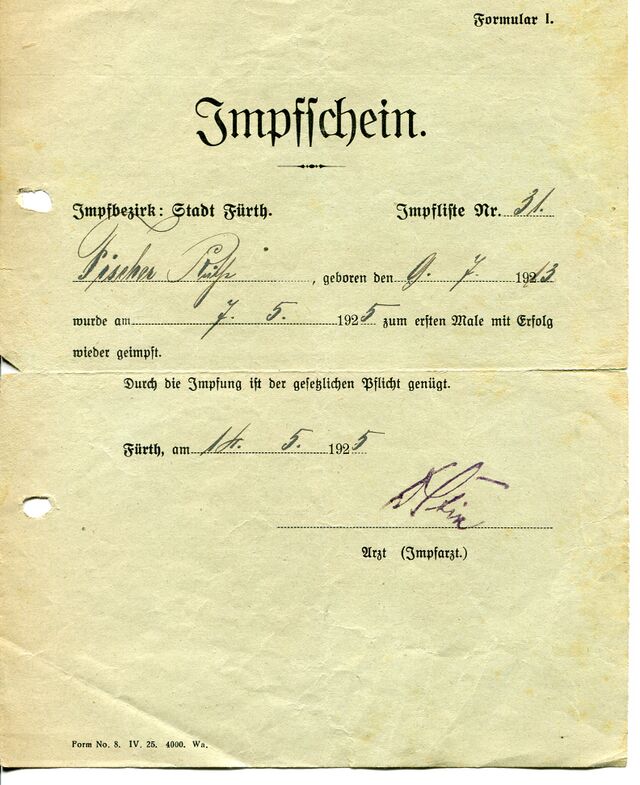 Formular I.
Impfschein.
Impfbezirk: Stadt Fürth.
Impfliste Nr. 31.
Fischer, geboren den 9. 7. 1913
wurde am 7. 5. 1925 zum ersten Male mit Erfolg
wieder geimpft.
Durch die Impfung ist der gesetzlichen Pflicht genügt.
Fürth, am 14. 5. 1925
Arzt (Impfarzt.)
Form No. 8. IV. 25. 4000. Wa.